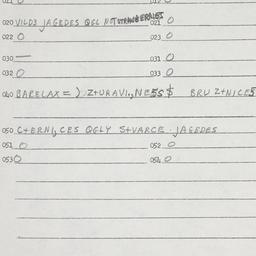 020 VILDS JAGEDES QGL NOT STRAWBERRIES 021 O
022 O 023 O
030 — 031 O
032 O 033 O
040 BARELAX = ) Z+URAVI., NE5S$ BRU Z+NICES
050 C+ERNI, CES QGLY S+VARCE · JAGEDES
051 O 052 O
053 O 054 O